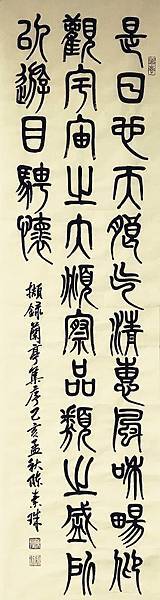 是日也天朗气清惠風和暢仰
觀宇宙之大頫察品類之盛所
以遊目騁懷
擷錄蘭亭集序己亥孟秋陳素珠